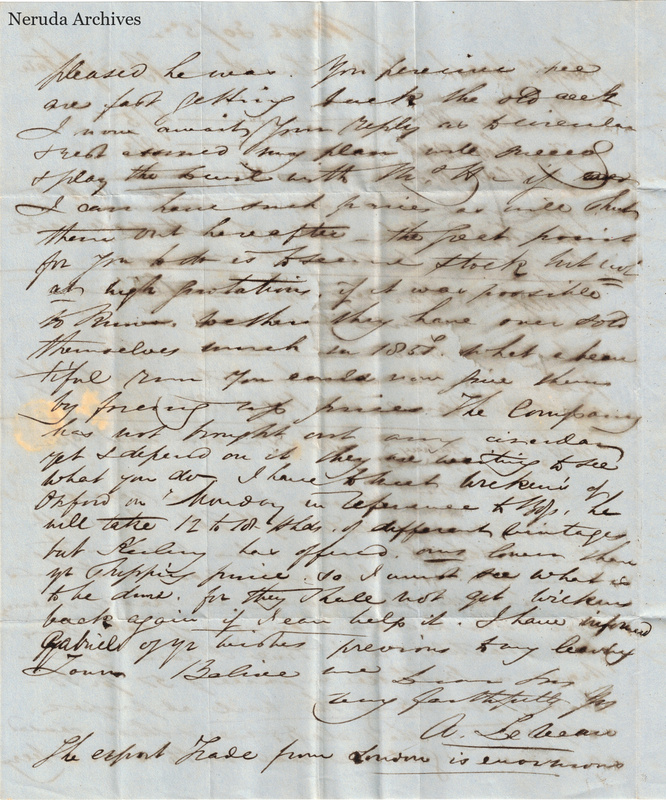 Neruda Archives
pleased he was. You perceive we
are fast getting back the old
I now await your reply as to circular
& rest assured my plan will succeed
& play the Devil with if
I can have such prices as will shut
them out hereafter – the great point
for you to do is to secure stock but not
at high quotations, if it was possible
to know. whether they have over sold
themselves much in 185 . what a beau
tiful run you could now give them
by forcing up prices The Company
has not brought out any circular
yet & depend on it they are waiting to see
what you do, I have to meet Wickens of
Oxford on Monday in reference to , he
will take 12 to 18 Hhds. of different vintages
but has offered. lower than
yr Shipping price. so I must see what is
to be done. for they shall not get Wickens
back again if I can help it. I have informed
Gabriel of yr wishes previous to my leaving
Town Believe me
Dear Sir
very faithfully yrs
A.
The export Trade from London is enormous